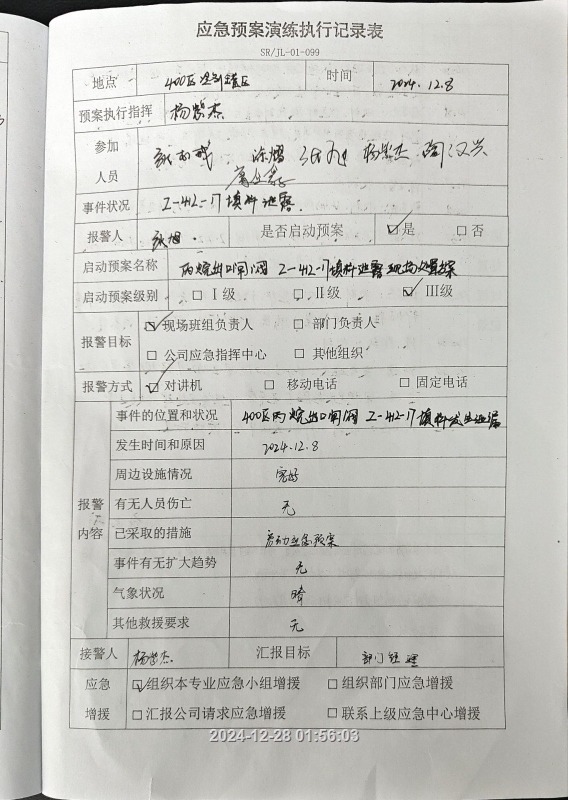 应急预案演练执行记录表
SR/JL-01-099
地点 400区 罐区 时间 2024.12.8
预案执行指挥 杨
参加
人员 杨
事件状况 Z-412-17填料泄露.
报警人 是否启动预案 ☑是 □否
启动预案名称 丙烷出口闸阀 Z-412-17填料泄露现场处置
启动预案级别 □I级 □II级 ☑III级
报警目标 ☑现场班组负责人 □部门负责人
□公司应急指挥中心 □其他组织
报警方式 ☑对讲机 □移动电话 □固定电话
报警内容 事件的位置和状况 400区丙烷出口闸阀 Z-412-17填料发生泄漏
发生时间和原因 2024.12.8
周边设施情况 完好
有无人员伤亡 无
已采取的措施 启动应急预案
事件有无扩大趋势 无
气象状况 晴
其他救援要求 无
接警人 杨 汇报目标 部门经理
应急增援 ☑组织本专业应急小组增援 □组织部门应急增援
□汇报公司请求应急增援 □联系上级应急中心增援
2024-12-28 01:56:03